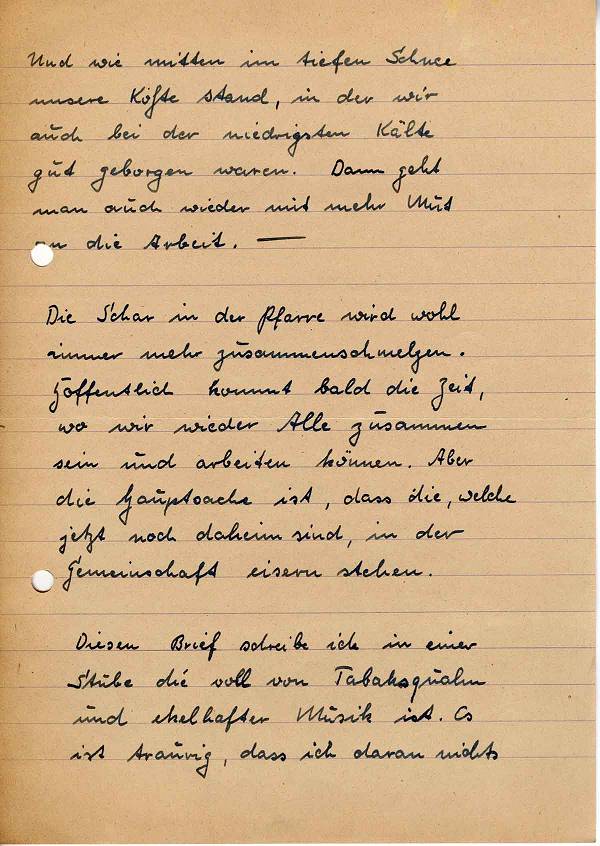 Und wie mitten im tiefen Schnee
unsere Köfte stand, in der wir
auch bei der niedrigsten Kälte
gut geborgen waren. Dann geht
man auch wieder mit mehr Mut
an die Arbeit. —
Die Schar in der Pfarre wird wohl
immer mehr zusammenschmelzen.
Hoffentlich kommt bald die Zeit,
wo wir wieder Alle zusammen
sein und arbeiten können. Aber
die Hauptsache ist, dass die, welche
jetzt noch daheim sind, in der
Gemeinschaft eisern stehen.
Diesen Brief schreibe ich in einer
Stube die voll von Tabaksqualm
und ekelhafter Musik ist. Es
ist traurig, dass ich daran nichts